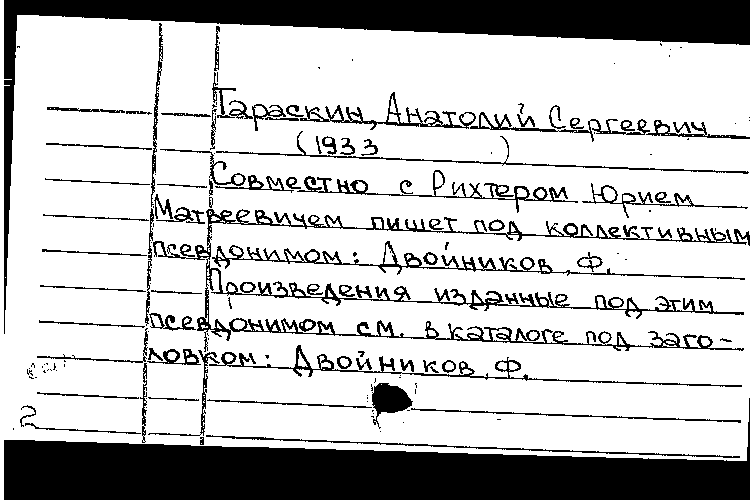 Тараскин, Анатолий Сергеевич
(1933 )
Совместно с Рихтером Юрием
Матвеевичем пишет под коллективным
псевдонимом: Двойников, Ф.
Произведения изданные под этим
псевдонимом см. в каталоге под заго-
ловком: Двойников, Ф.
2